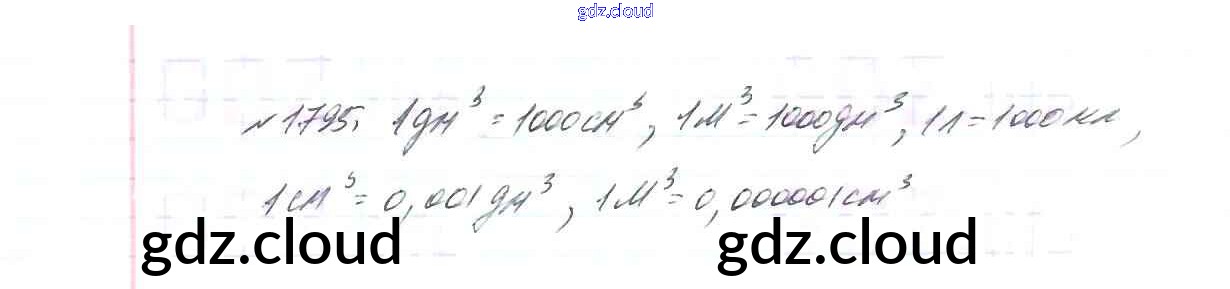 gdz.cloud
№1795. 1дм³ = 1000см³, 1м³ = 1000дм³, 1л = 1000мл,
1см³ = 0,001дм³, 1м³ = 0,000001см³
gdz.cloud gdz.cloud